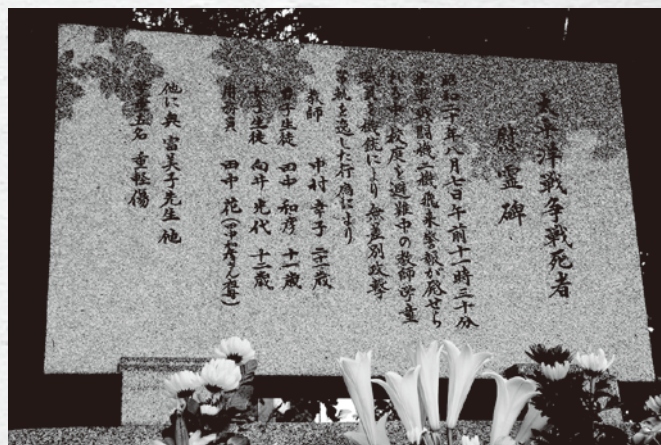 太平洋戦争戦死者
慰霊碑
昭和二十年八月七日午前十一時三十分
米軍戦闘機二機飛来警報が発せら
れる中 校庭を避難中の教師学童
数其を機銃により無差別攻撃
常軌を逸した行為により
教師 中村幸子 二十一歳
男子生徒 田中和彦 十一歳
女子生徒 向井光代 十二歳
用務員 田中 花(和彦さん母)
他に奥富美子先生 他
学童五名 重軽傷